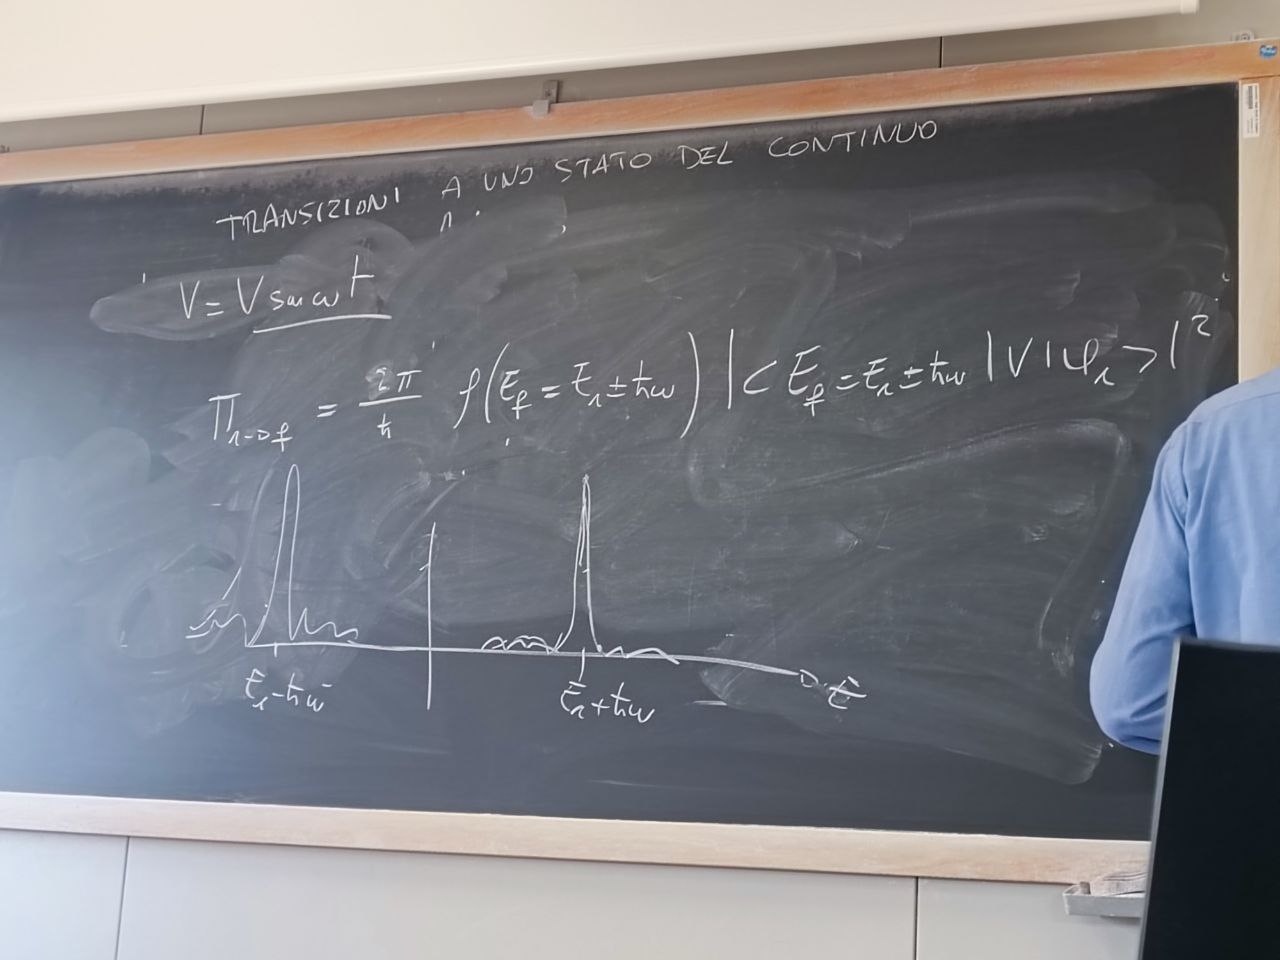 TRANSIZIONI A UNO STATO DEL CONTINUO
V = V sin ωt
Π i→f = 2π/ħ ρ(E_f = E_i ± ħω) |< E_f = E_i ± ħω |V| φ_i >|²
E_i - ħω
E_i + ħω
E